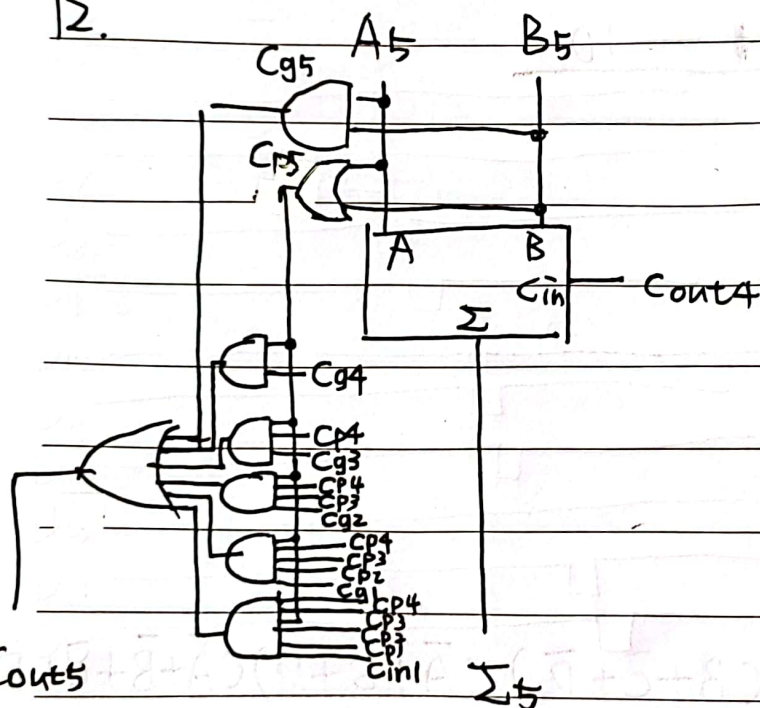 12.
A5 B5
Cg5
Cp5
A B
Cin Cout4
Σ
Cg4
Cp4
Cg3
Cp4
Cp3
Cg2
Cp4
Cp3
Cp2
Cg1
Cp4
Cp3
Cp2
Cp1
Cin1
Cout5 Σ5